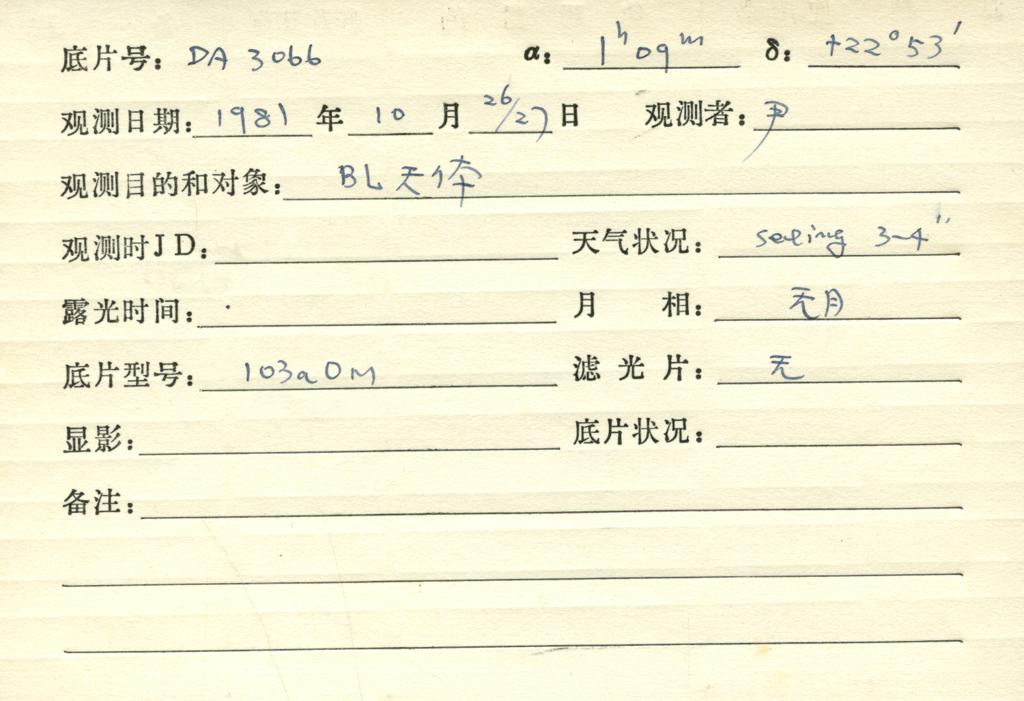 底片号: DA 3066 α: 1ʰ09ᵐ δ: +22°53′
观测日期: 1981 年 10 月 26/27 日 观测者: 尹
观测目的和对象: BL天体
观测时JD: 天气状况: seeing 3-4″
露光时间: 月 相: 无月
底片型号: 103aOM 滤光片: 无
显影: 底片状况:
备注: